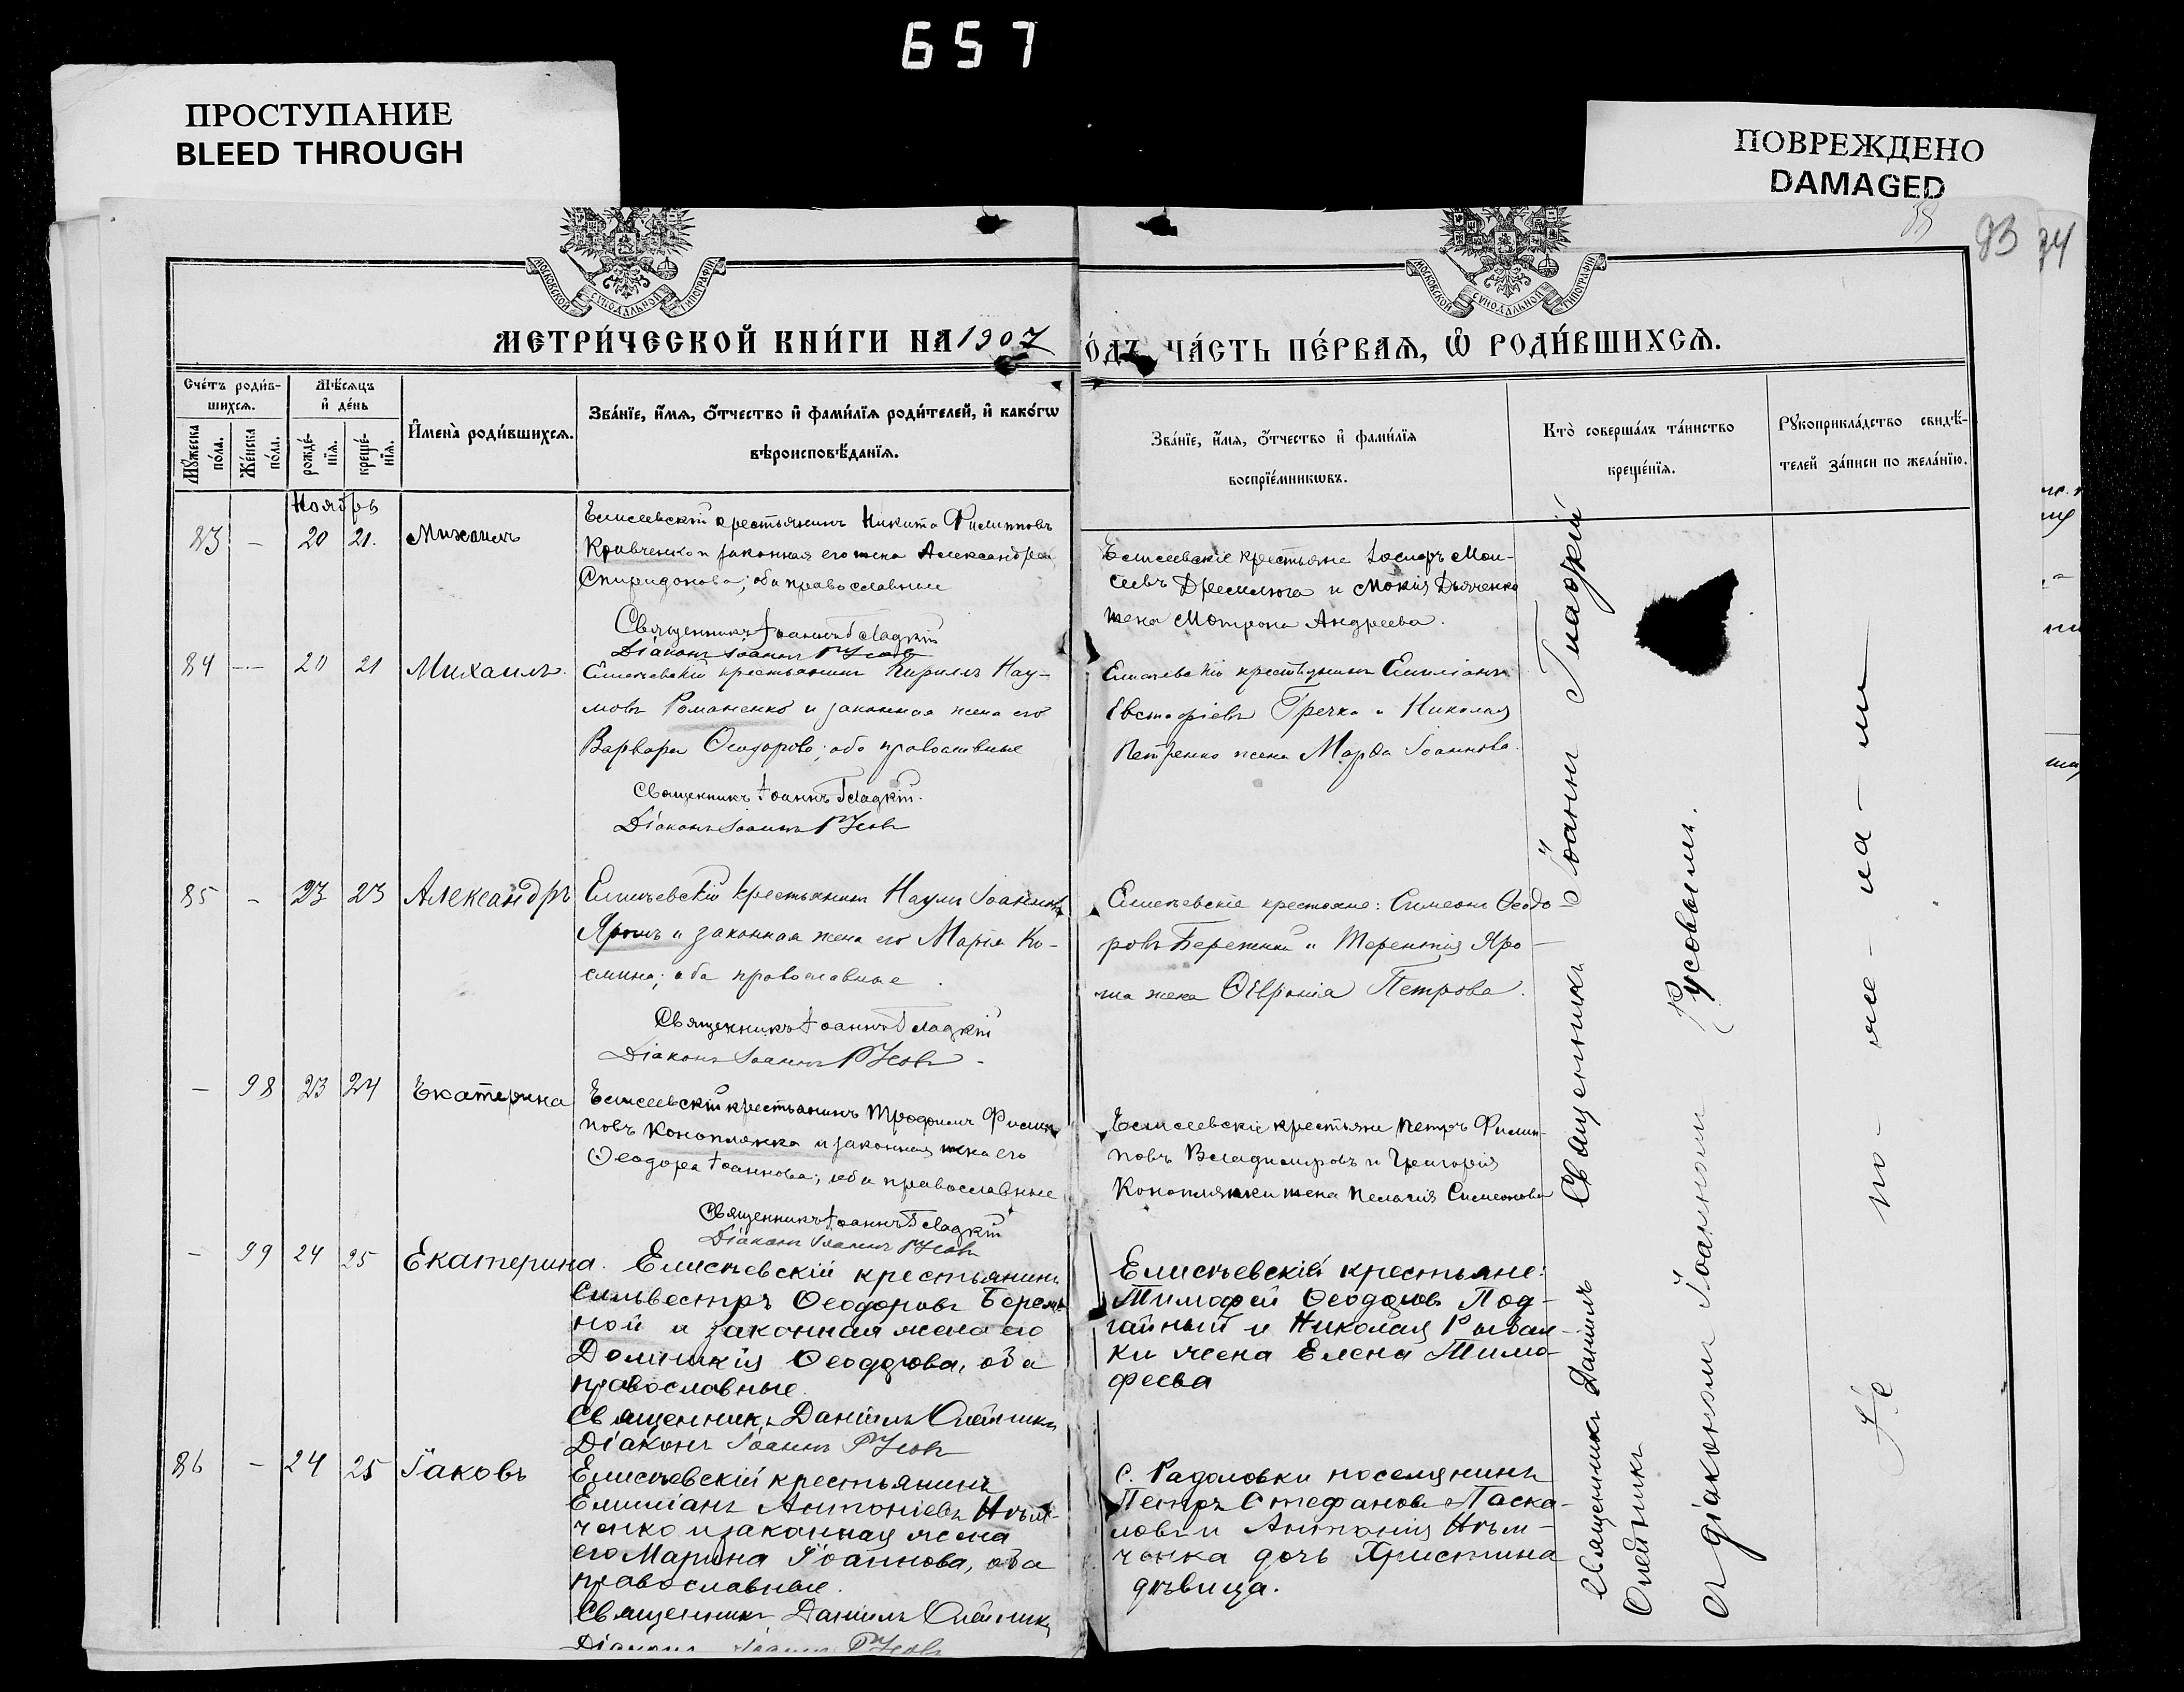 657
ПРОСТУПАНИЕ
BLEED THROUGH
ПОВРЕЖДЕНО
DAMAGED
93
94
МОСКОВСКОЙ СѴНОДАЛЬНОЙ ТИПОГРАФІИ
МОСКОВСКОЙ СѴНОДАЛЬНОЙ ТИПОГРАФІИ
МЕТРИ́ЧЕСКОЙ КНИ́ГИ НА 1907
О́ДЪ, ЧА́СТЬ ПЕ́РВАѦ, Ѡ҆ РОДИ́ВШИХСѦ.
Сче́тъ роди́в-
шихсѧ.
Мѣ́сѧцъ
и҆ де́нь
Мꙋ́жеска
по́ла.
Же́нска
по́ла.
рожде́-
нїѧ.
креще́-
нїѧ.
И҆мена̀ роди́вшихсѧ.
Зва́нїе, и҆́мѧ, ѻ҆́тчество и҆ фами́лїѧ роди́телей, и҆ како́гѡ
вѣроисповѣ́данїѧ.
Зва́нїе, и҆́мѧ, ѻ҆́тчество и҆ фами́лїѧ
воспрїе́мникѡвъ.
Кто̀ соверша́лъ та́инство
креще́нїѧ.
Рꙋкоприкла́дство свидѣ́-
телей за́писи по жела́нїю.
Ноябрь
83 — 20 21. Михаилъ
Елисеевскій крестьянинъ Никита Филипповъ
Кравченко и законная его жена Александра
Спиридонова; оба православные
Священникъ Іоаннъ Гладкій
Діаконъ Іоаннъ Русовъ
Елисеевскіе крестьяне Іосифъ Мои-
сеевъ Дремлюга и Мокія Дьяченко
жена Мотрона Андреева.
84 — 20 21 Михаилъ.
Елисѣевскій крестьянинъ Кириллъ Нау-
мовъ Романенко и законная жена его
Варвара Ѳеодорова; оба православные
Священникъ Іоаннъ Гладкій.
Діаконъ Іоаннъ Русовъ
Елисѣевскій крестьянинъ Емиліанъ
Евстафіевъ Гречка и Николая
Петренко жена Марѳа Іоаннова.
85 — 23 23 Александръ
Елисѣевскій крестьянинъ Наумъ Іоанновъ
Ярошъ и законная жена его Марія Ко-
смина; оба православные.
Священникъ Іоаннъ Гладкій
Діаконъ Іоаннъ Русовъ
Елисѣевскіе крестьяне: Симеонъ Ѳеодо-
ровъ Бережный и Терентія Яро-
ша жена Ѳеѵронія Петрова.
— 98 23 24 Екатерина
Елисеевскій крестьянинъ Трофимъ Филип-
повъ Коноплянка и законная жена его
Ѳеодора Іоаннова; оба православные
Священникъ Іоаннъ Гладкій
Діаконъ Іоаннъ Русовъ
Елисеевскіе крестьяне Петръ Филип-
повъ Владимировъ и Григорія
Коноплянки жена Пелагія Симеонова
— 99 24 25 Екатерина.
Елисѣевскій крестьянинъ
Сильвестръ Ѳеодоровъ Береж-
ной и законная жена его
Домникія Ѳеодорова, оба
православные.
Священникъ Даніилъ Олейникъ
Діаконъ Іоаннъ Русовъ
Елисѣевскій крестьяне:
Тимофей Ѳеодоровъ Под-
гайный и Николая Рыбал-
ки жена Елена Тимо-
феева
86 — 24 25 Іаковъ
Елисѣевскій крестьянинъ
Емиліанъ Антоніевъ Нѣм-
ченко и законная жена
его Марина Іоаннова, оба
православные.
Священникъ Даніилъ Олейникъ
Діаконъ Іоаннъ Русовъ
с. Радоловки поселянинъ
Петръ Стефановъ Паска-
ловъ и Антонія Нѣм-
ченка дочь Христина
дѣвица.
Священникъ Іоаннъ Гладкій
Священникъ Даніилъ
Олейникъ
съ діакономъ Іоанномъ Русовымъ.
Не по-же-ла-ли